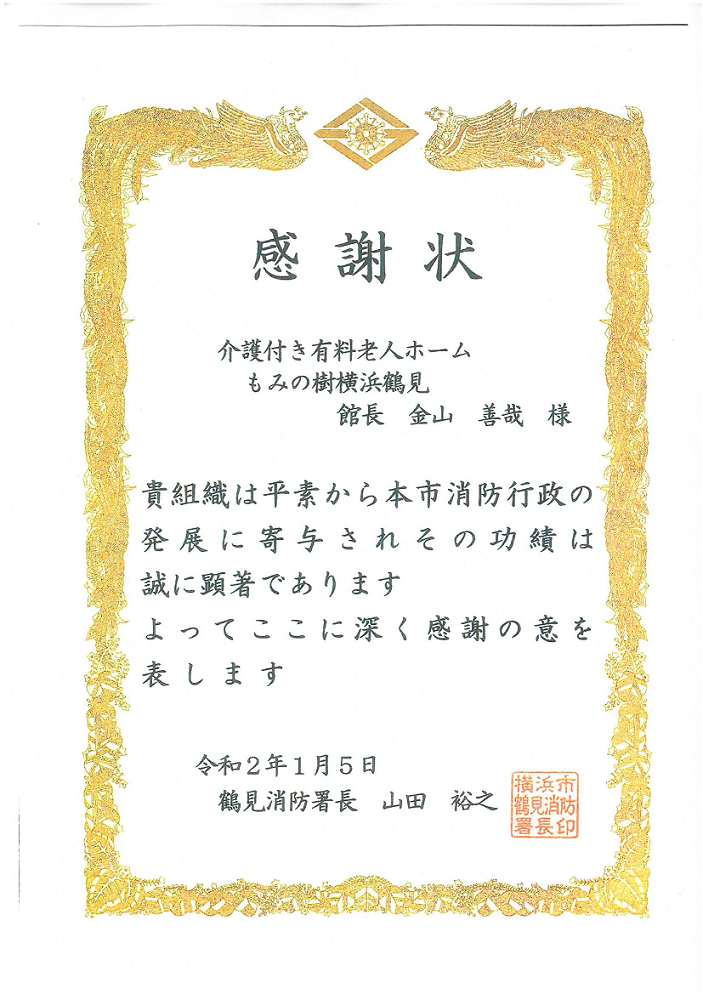 感謝状
介護付き有料老人ホーム
もみの樹横浜鶴見
館長 金山 善哉 様
貴組織は平素から本市消防行政の
発展に寄与されその功績は
誠に顕著であります
よってここに深く感謝の意を
表します
令和2年1月5日
鶴見消防署長 山田 裕之
横浜市
鶴見消防
署長印